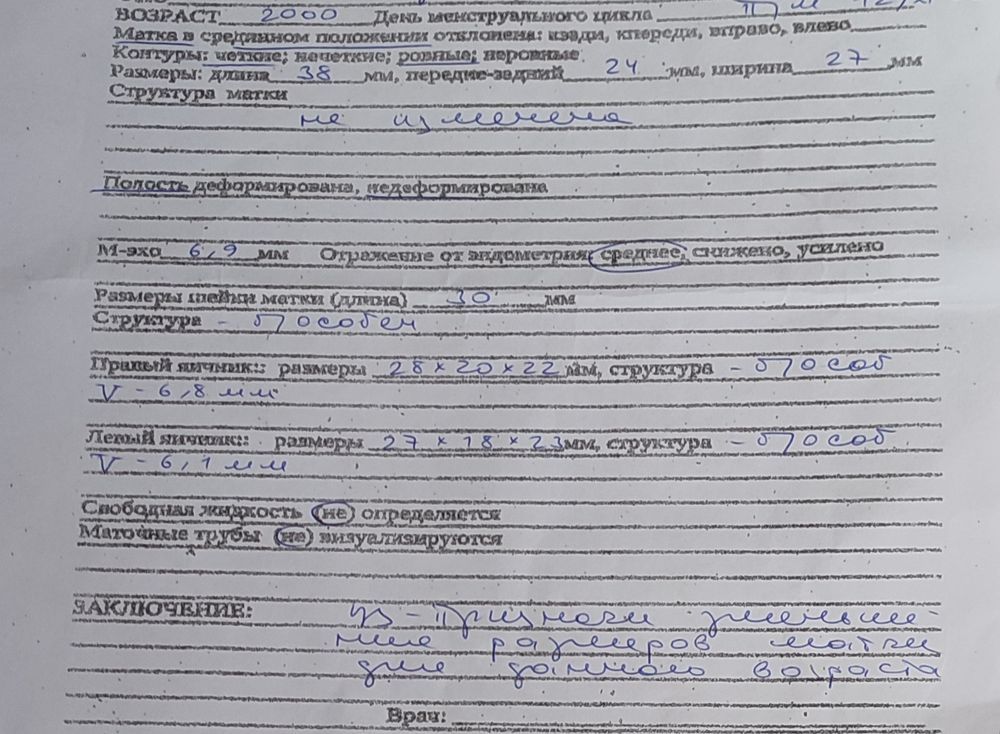 ВОЗРАСТ 2000 День менструального цикла
Матка в срединном положении отклонена: кзади, кпереди, вправо, влево
Контуры: четкие; нечеткие; ровные; неровные
Размеры: длина 38 мм, передне-задний 24 мм, ширина 27 мм
Структура матки
не изменена
Полость деформирована, недеформирована
М-эхо 6,9 мм Отражение от эндометрия среднее, снижено, усилено
Размеры шейки матки (длина) 30 мм
Структура - б/особен
Правый яичник:: размеры 28 × 20 × 22 мм, структура - б/особ
V - 6,8 мм
Левый яичник:: размеры 27 × 18 × 23 мм, структура - б/особ
V - 6,1 мм
Свободная жидкость (не) определяется
Маточные трубы (не) визуализируются
ЗАКЛЮЧЕНИЕ: УЗ-признаки уменьше-
ние размеров матки
для данного возраста
Врач: